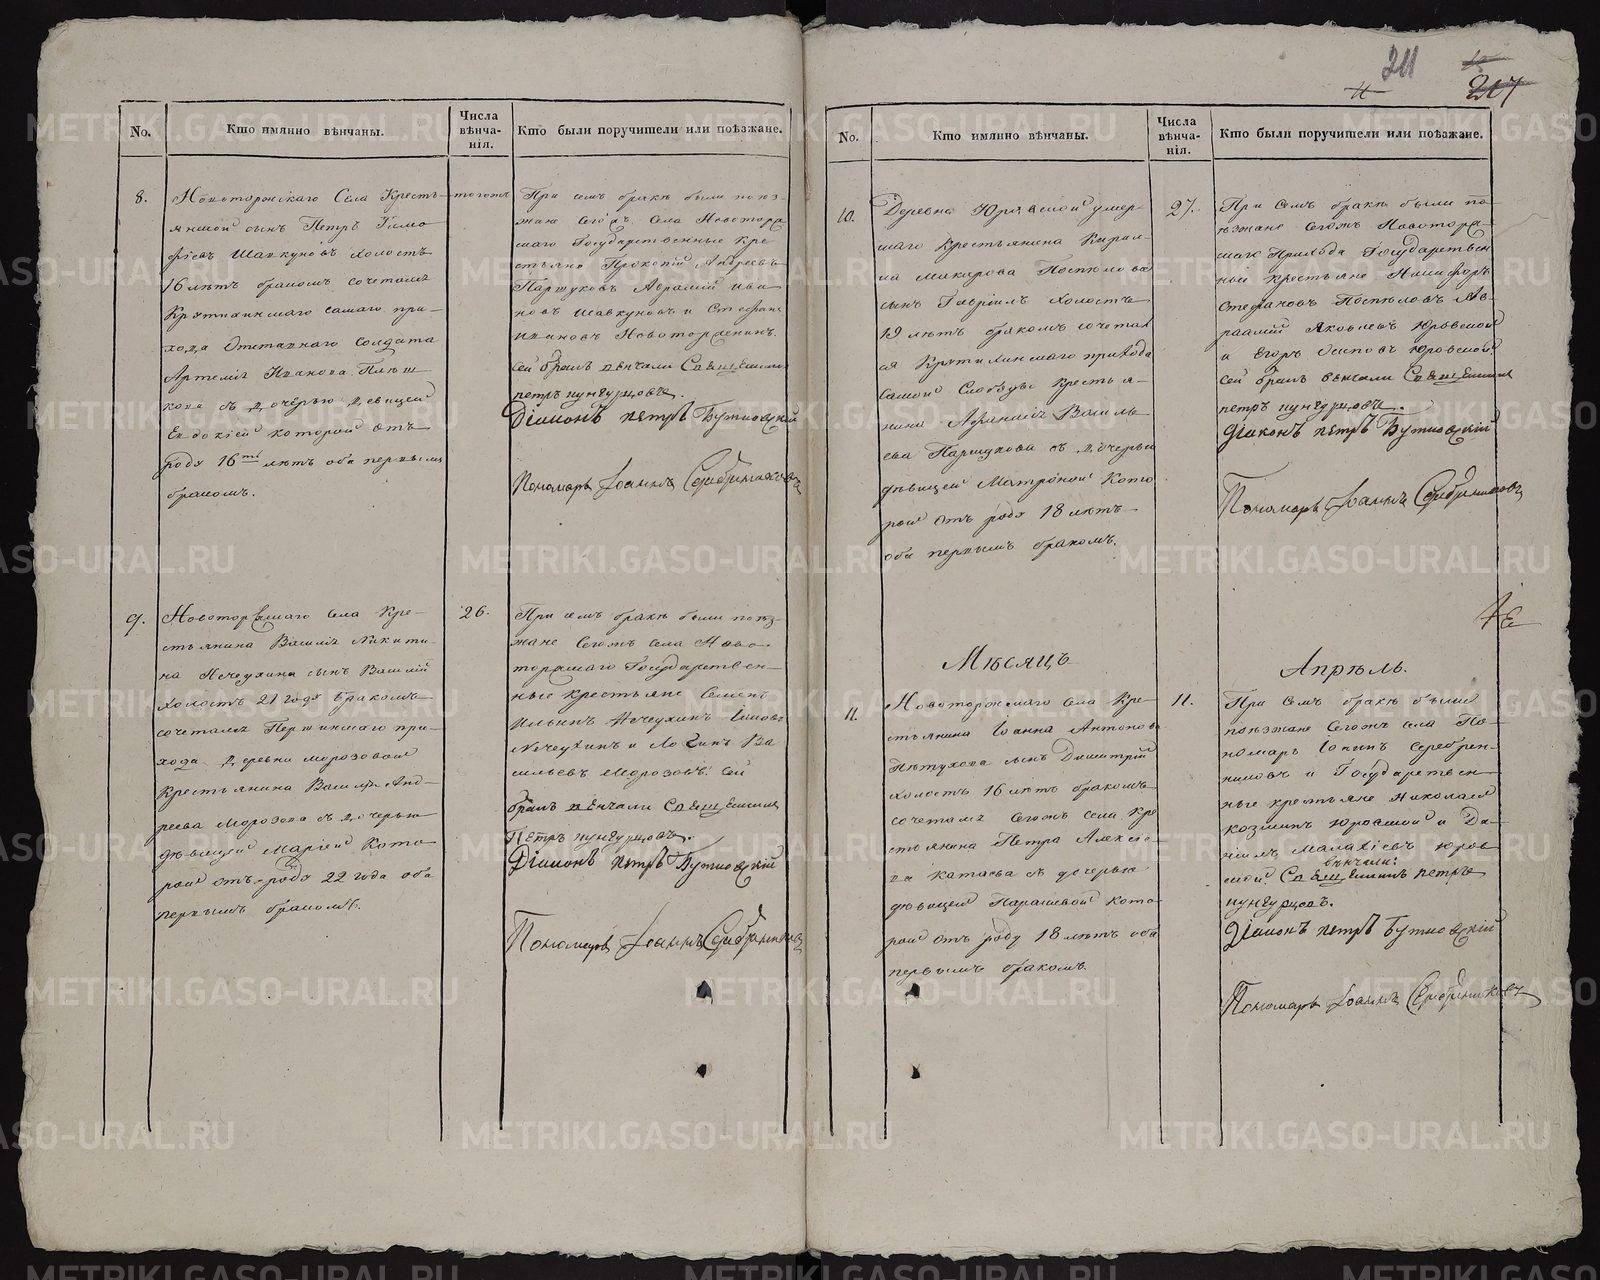 No.
Кто имянно вѣнчаны.
Числа
вѣнча-
нія.
Кто были поручители или поѣзжане.
8.
Новоторжскаго Села Кресть-
янской сынъ Петръ Тимо
фѣевъ Шавкуновъ холостъ
16 лѣтъ бракомъ сочетался
прихо-
хода Отставнаго Солдата
Артемія Иванова
кова съ дочерью Дѣвицей
Евдокіей которой отъ
роду 16ть лѣтъ оба первымъ
бракомъ.
тогожъ
При семъ бракѣ были поѣз-
жане Сегожъ Села Новотора
скаго Государственные кре
стьяне Прокопій Андреевъ
Паршуковъ Авраамій Ива
новъ Шавкуновъ и Стефанъ
Ивановъ
сей бракъ вѣнчали Священникъ
петръ пунгурцовъ.
Діаконъ петръ Бутковскій
Пономарь Іоаннъ Серебрениковъ
9.
Новоторжскаго Села Кре-
стьянина Василія Никити-
на Нечеухина сынъ Василій
холостъ 21 года бракомъ
сочетался Першинскаго при-
хода Деревни Морозовой
Крестьянина Василья Анд-
реева Морозова съ дочерью
дѣвицей Маріей Кото-
рой отъ роду 22 года оба
первымъ бракомъ.
26.
При семъ бракѣ были поѣз-
жане Сегожъ Села Ново-
торжскаго Государствен-
ные крестьяне Семенъ
Ильинъ Нечеухинъ
Нечеухинъ и Логинъ Ва
сильевъ Морозовъ. сей
бракъ вѣнчали Священникъ
Петръ пунгурцовъ.
Діаконъ петръ Бутковскій
Пономарь Іоаннъ Серебрениковъ
211
11
217
No.
Кто имянно вѣнчаны.
Числа
вѣнча-
нія.
Кто были поручители или поѣзжане.
10.
Деревни Юровской умер-
шаго Крестьянина Кирил-
ла Макарова Поспелова
сынъ Гавріилъ холостъ
19 лѣтъ бракомъ сочетал
ся прихода
самой Слободы Крестья-
нина Василь
ева Паршукова съ дочерью
дѣвицей Матроной Кото
рой отъ роду 18 лѣтъ
оба первымъ бракомъ.
27.
При Семъ бракѣ были по
ѣзжане Сегожъ Новотора-
скаго Прихода Государствен
ные крестьяне Никифоръ
Стефановъ Поспеловъ Ав-
раамій Яковлевъ Юровской
и Егоръ Осиповъ Юровской
Сей бракъ вѣнчали Священникъ
петръ пунгурцовъ.
Діаконъ петръ Бутковскій
Пономарь Іоаннъ Серебрениковъ
Мѣсяцъ
Апрѣль.
11.
Новоторжскаго Села Кре-
стьянина Іоанна Антонова
Пѣтухова сынъ Димитрій
холостъ 16 лѣтъ бракомъ
сочетался Сегожъ села Кре
стьянина Петра Алексѣе-
ва Катаева съ дочерью
дѣвицей Параскевой кото-
рой отъ роду 18 лѣтъ оба
первымъ бракомъ.
11.
При Семъ бракѣ были
поѣзжане Сегожъ села По-
номарь Іоаннъ Серебрен-
никовъ и Государствен-
ные крестьяне Николай
козминъ Юровской и Да-
ніилъ Малахіевъ Юров
вѣнчали:
ской. Священникъ петръ
пунгурцовъ.
Діаконъ петръ Бутковскій
Пономарь Іоаннъ Серебрениковъ
METRIKI.GASO-URAL.RU